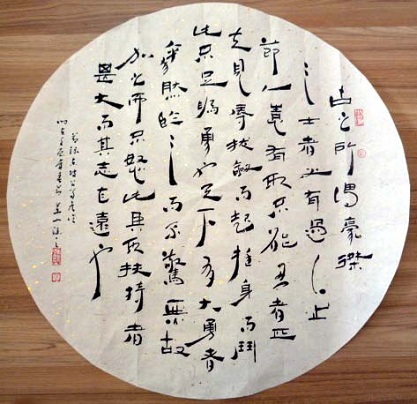 古之所謂豪傑
之士者必有過人之
節人情有所不能忍者匹
夫見辱拔劍而起挺身而鬥
此不足為勇也天下有大勇者
卒然臨之而不驚無故
加之而不怒此其所挾持者
甚大而其志甚遠也